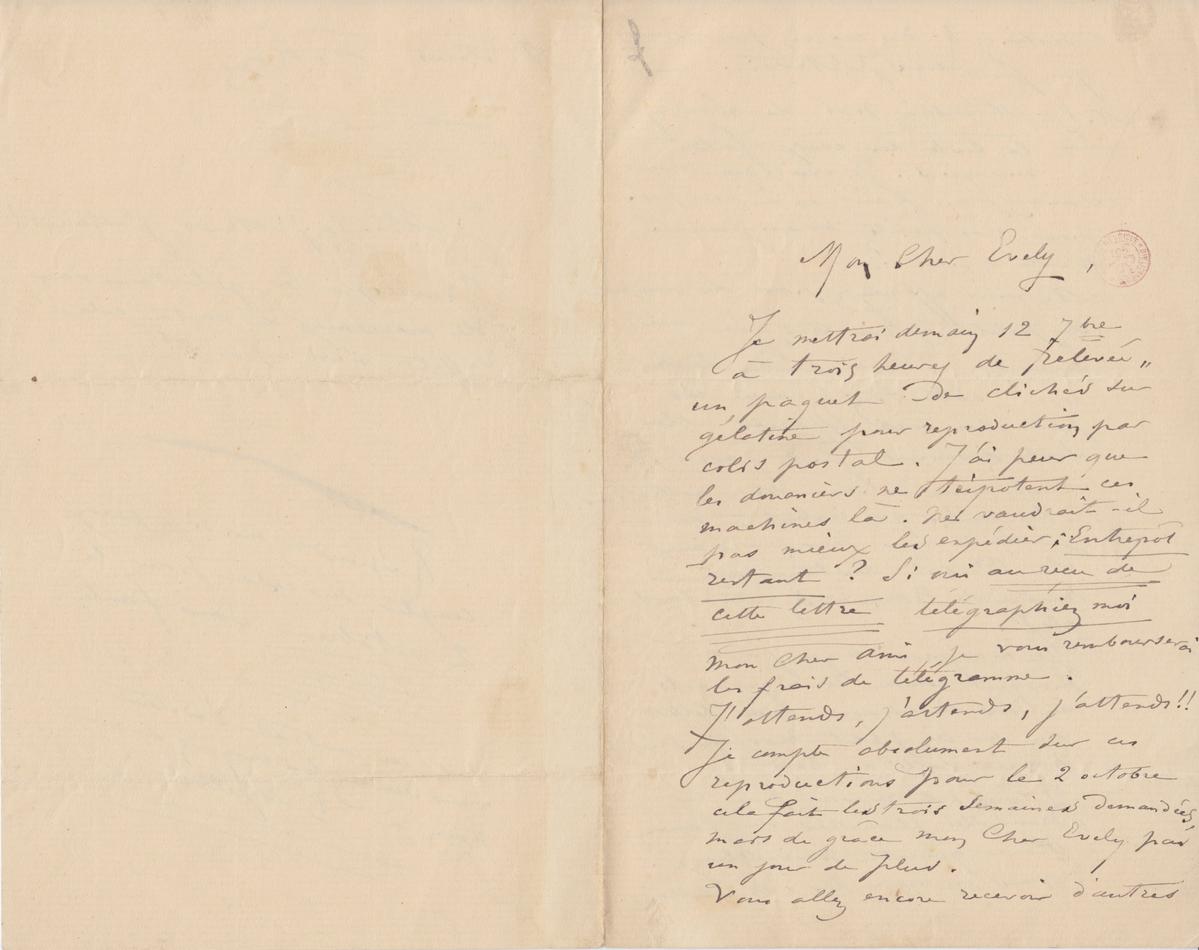 Mon Cher Evely,
Je mettrai demain 12 7bre
à trois heures de "relevée"
un paquet de clichés sur
gélatine pour reproduction par
colis postal. J'ai peur que
les douaniers ne tripotent ces
machines là. Ne vaudrait-il
pas mieux les expédier, Entrepôt
restant ? Si oui au reçu de
cette lettre télégraphiez moi
mon cher ami, je vous rembourserai
les frais de télégramme.
J'attends, j'attends, j'attends!!
Je compte absolument sur ces
reproductions pour le 2 octobre
cela fait les trois semaines demandées,
mais de grâce mon Cher Evely pas
un jour de plus.
Vous allez encore recevoir d'autres